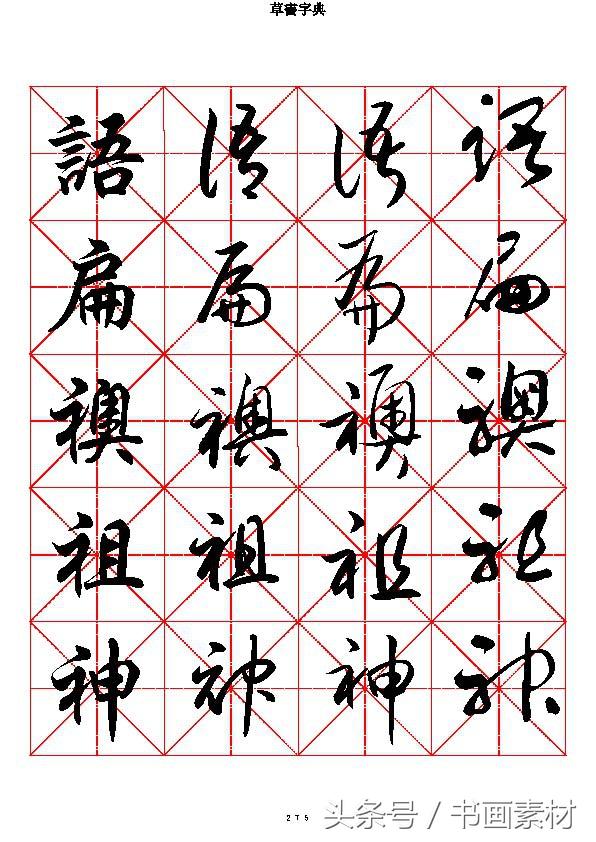 草書字典
語 語 語 語
扁 扁 扁 扁
襖 襖 襖 襖
祖 祖 祖 祖
神 神 神 神
275
头条号 / 书画素材